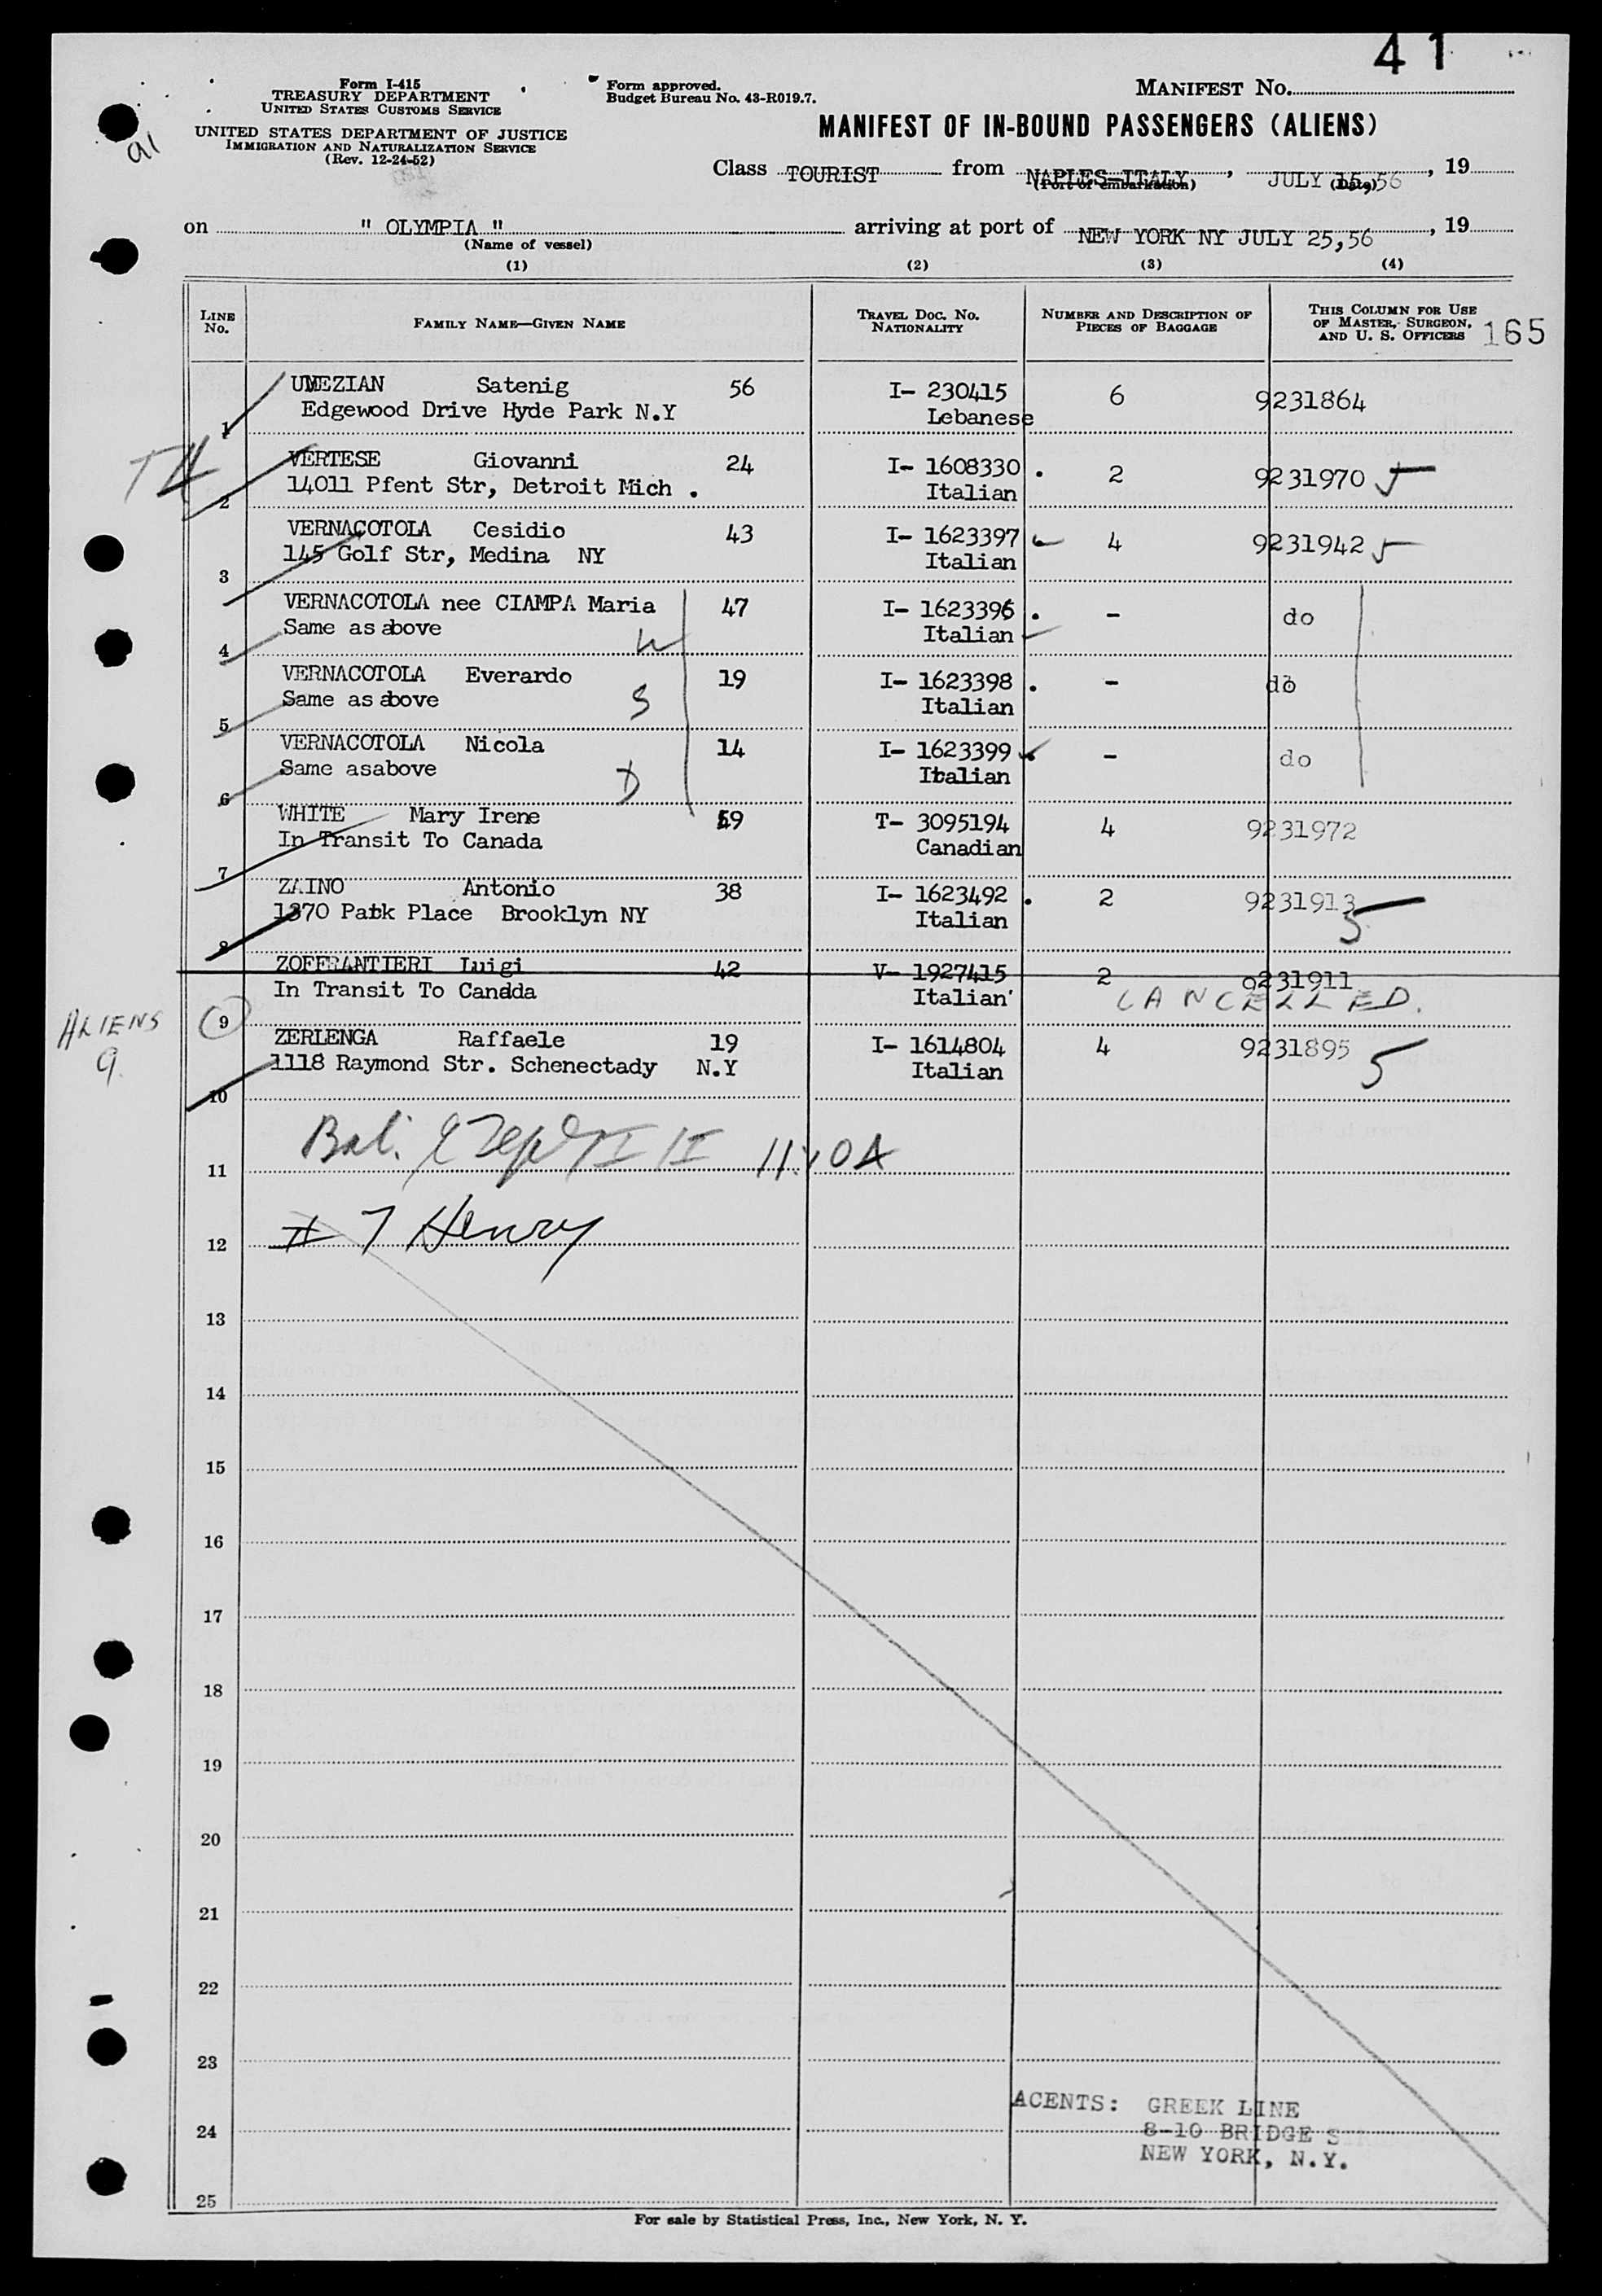 41
Form I-415
TREASURY DEPARTMENT
UNITED STATES CUSTOMS SERVICE
UNITED STATES DEPARTMENT OF JUSTICE
IMMIGRATION AND NATURALIZATION SERVICE
(Rev. 12-24-52)
Form approved.
Budget Bureau No. 43-R019.7.
MANIFEST No.
MANIFEST OF IN-BOUND PASSENGERS (ALIENS)
Class TOURIST from NAPLES-ITALY, JULY 15,56, 19
(Port of embarkation) (Date)
on " OLYMPIA " arriving at port of NEW YORK NY JULY 25,56, 19
(Name of vessel)
(1) (2) (3) (4)
LINE NO. FAMILY NAME—GIVEN NAME TRAVEL DOC. NO. NATIONALITY NUMBER AND DESCRIPTION OF PIECES OF BAGGAGE THIS COLUMN FOR USE OF MASTER, SURGEON, AND U. S. OFFICERS 165
UMEZIAN Satenig 56 I- 230415 6 9231864
1 Edgewood Drive Hyde Park N.Y Lebanese
VERTESE Giovanni 24 I- 1608330 2 9231970 5
2 14011 Pfent Str, Detroit Mich . Italian
VERNACOTOLA Cesidio 43 I- 1623397 4 9231942 5
3 145 Golf Str, Medina NY Italian
VERNACOTOLA nee CIAMPA Maria 47 I- 1623396 - do
4 Same as above W Italian
VERNACOTOLA Everardo 19 I- 1623398 - do
5 Same as above S Italian
VERNACOTOLA Nicola 14 I- 1623399 - do
6 Same asabove D Italian
WHITE Mary Irene 59 T- 3095194 4 9231972
7 In Transit To Canada Canadian
ZAINO Antonio 38 I- 1623492 2 9231913 5
8 1370 Patk Place Brooklyn NY Italian
ZOFFRANTIERI Luigi 42 V- 1927415 2 9231911
9 In Transit To Canada Italian CANCELLED.
ALIENS 9
ZERLENGA Raffaele 19 I- 1614804 4 9231895 5
10 1118 Raymond Str. Schenectady N.Y Italian
11
12 # 7 Henry
13
14
15
16
17
18
19
20
21
22
23
ACENTS: GREEK LINE
24 8-10 BRIDGE
NEW YORK, N.Y.
25
For sale by Statistical Press, Inc., New York, N. Y.